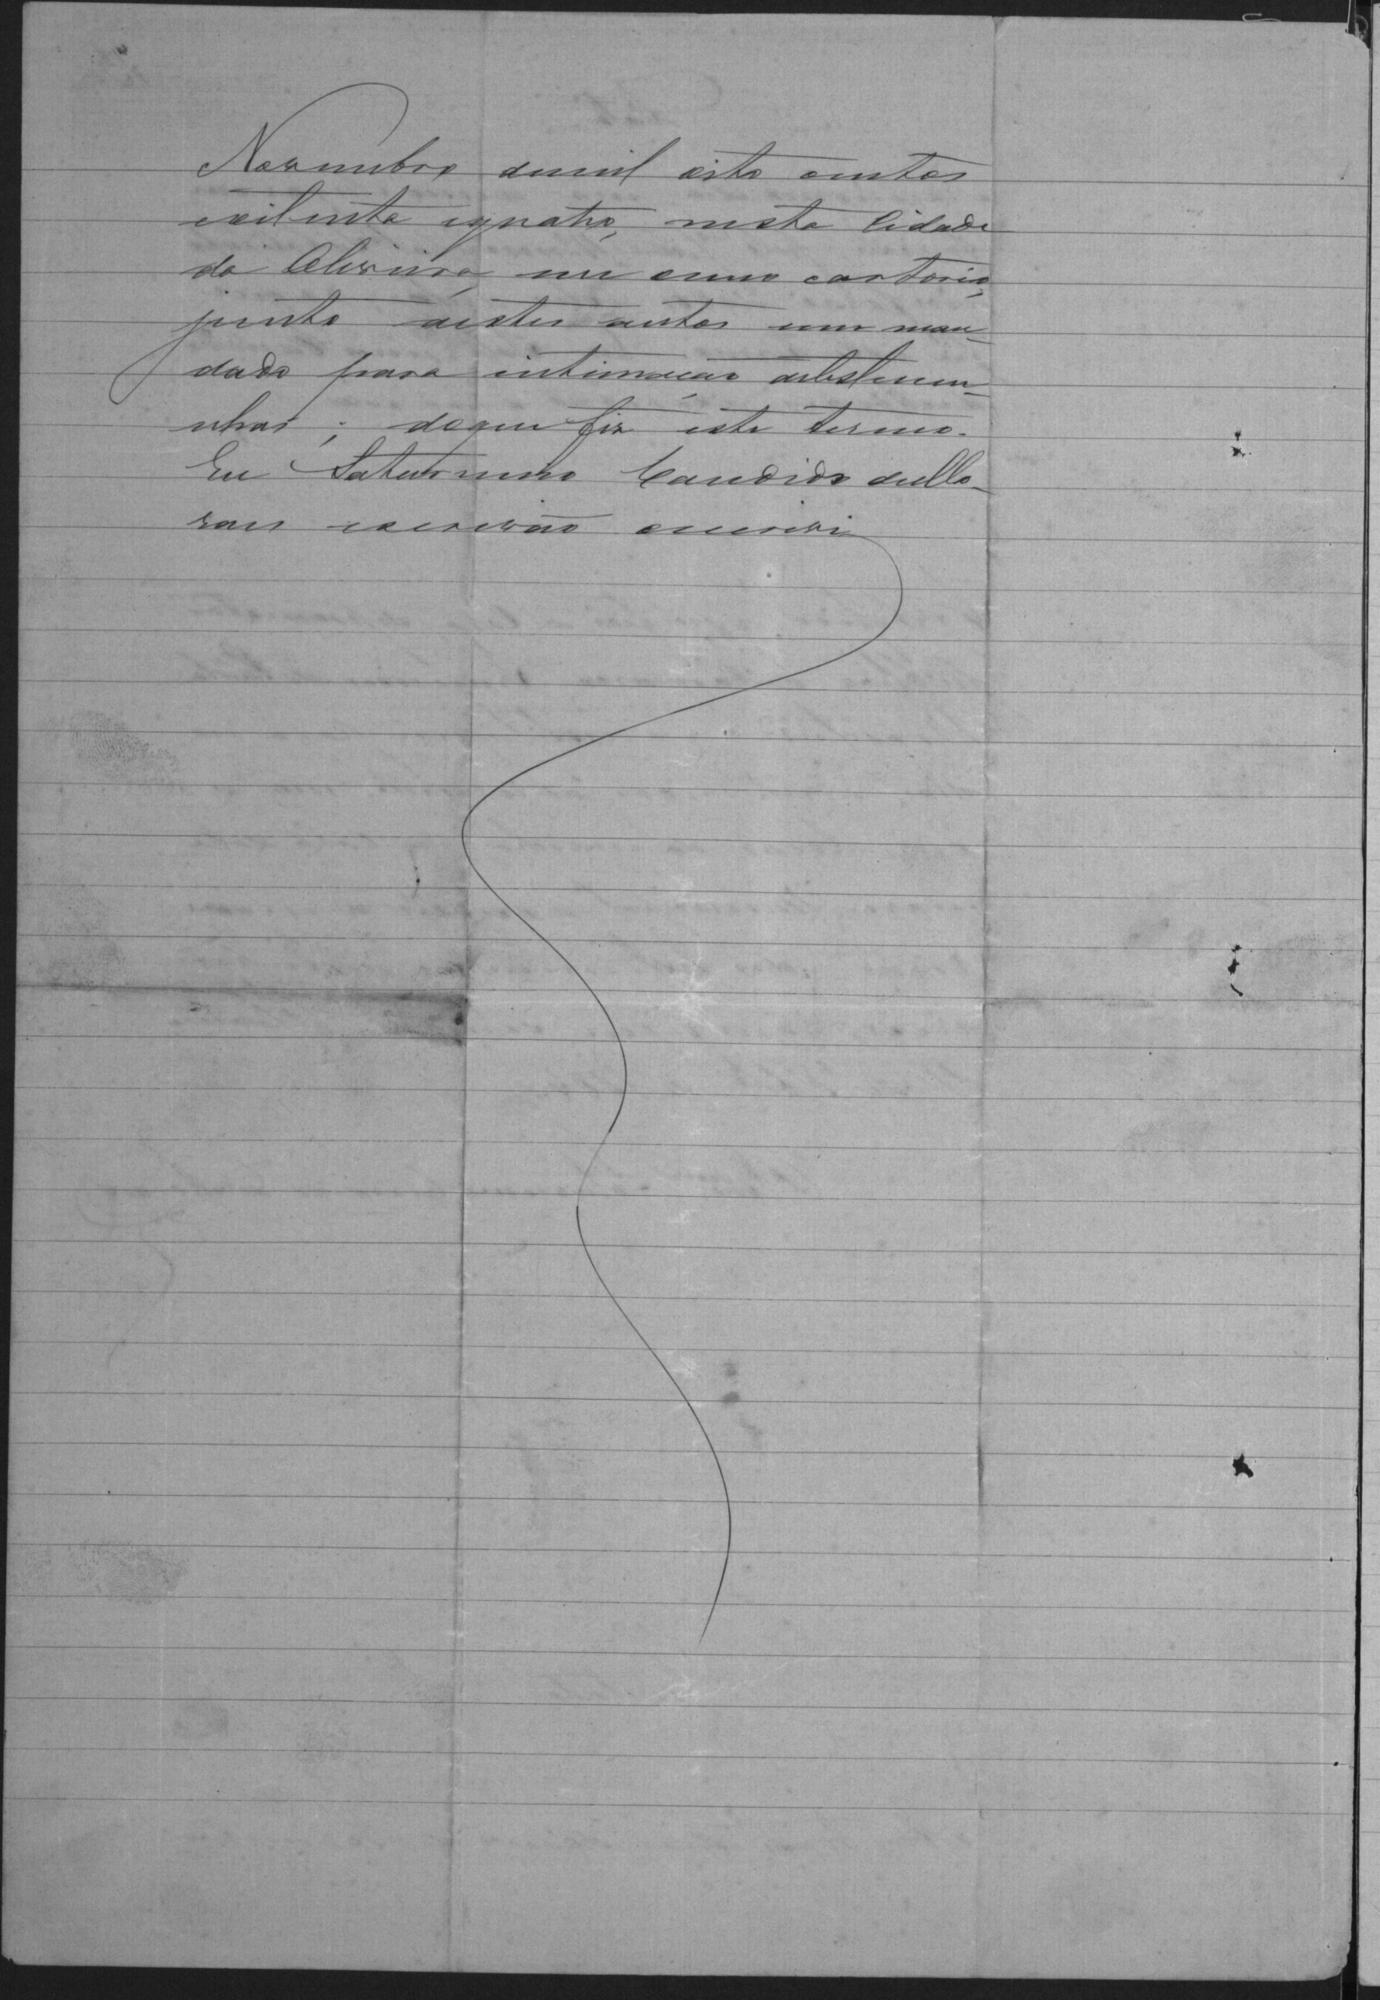 Novembro demil oito centos
eoitenta equatro, nesta Cidade
da Oliveira, em meo cartorio,
junto aestes autos um man-
dado para intimação detestemu-
nhas; doque fiz este termo.
Eu Saturnino Candido de
escrivão escrevi